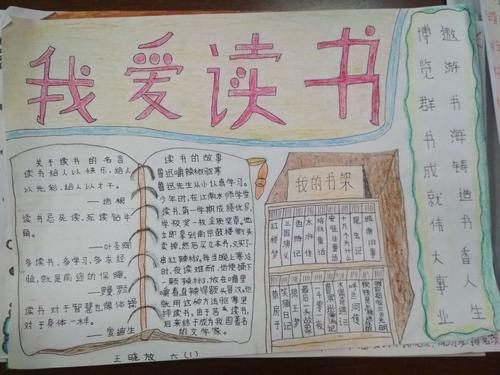 我爱读书
遨游书海铸造书香人生
博览群书成就伟大事业
关于读书的名言
读书给人以快乐、给人
以光彩、给人以才干。
——培根
读书忌死读,死读钻牛
角。
——叶圣陶
多读书,多学习,多求经
验,就是前途的保障。
读书对于智慧也像体操
对于身体一样。
——爱迪生
读书的故事
鲁迅嚼辣椒驱寒
鲁迅先生从小认真学习。
少年时,在江南水师学堂
读书,第一学期成绩优异,
学校奖一枚金质奖章。他
立即拿到南京鼓楼街头
卖掉,然后买几本书,又买了一
串红辣椒。每当晚上寒冷
时,夜读难耐,他便摘下
一颗辣椒,放在嘴里
嚼着,直辣得额头冒汗。他
就用这种方法驱寒坚
持读书。由于苦读书,
后来终于成为我国著名
的文学家。
我的书架
红楼梦
三国演义
西游记
水浒传
安徒生童话
十万个为什么
昆虫记
城南旧事
笑猫日记
呼兰河传
王晓 六(1)